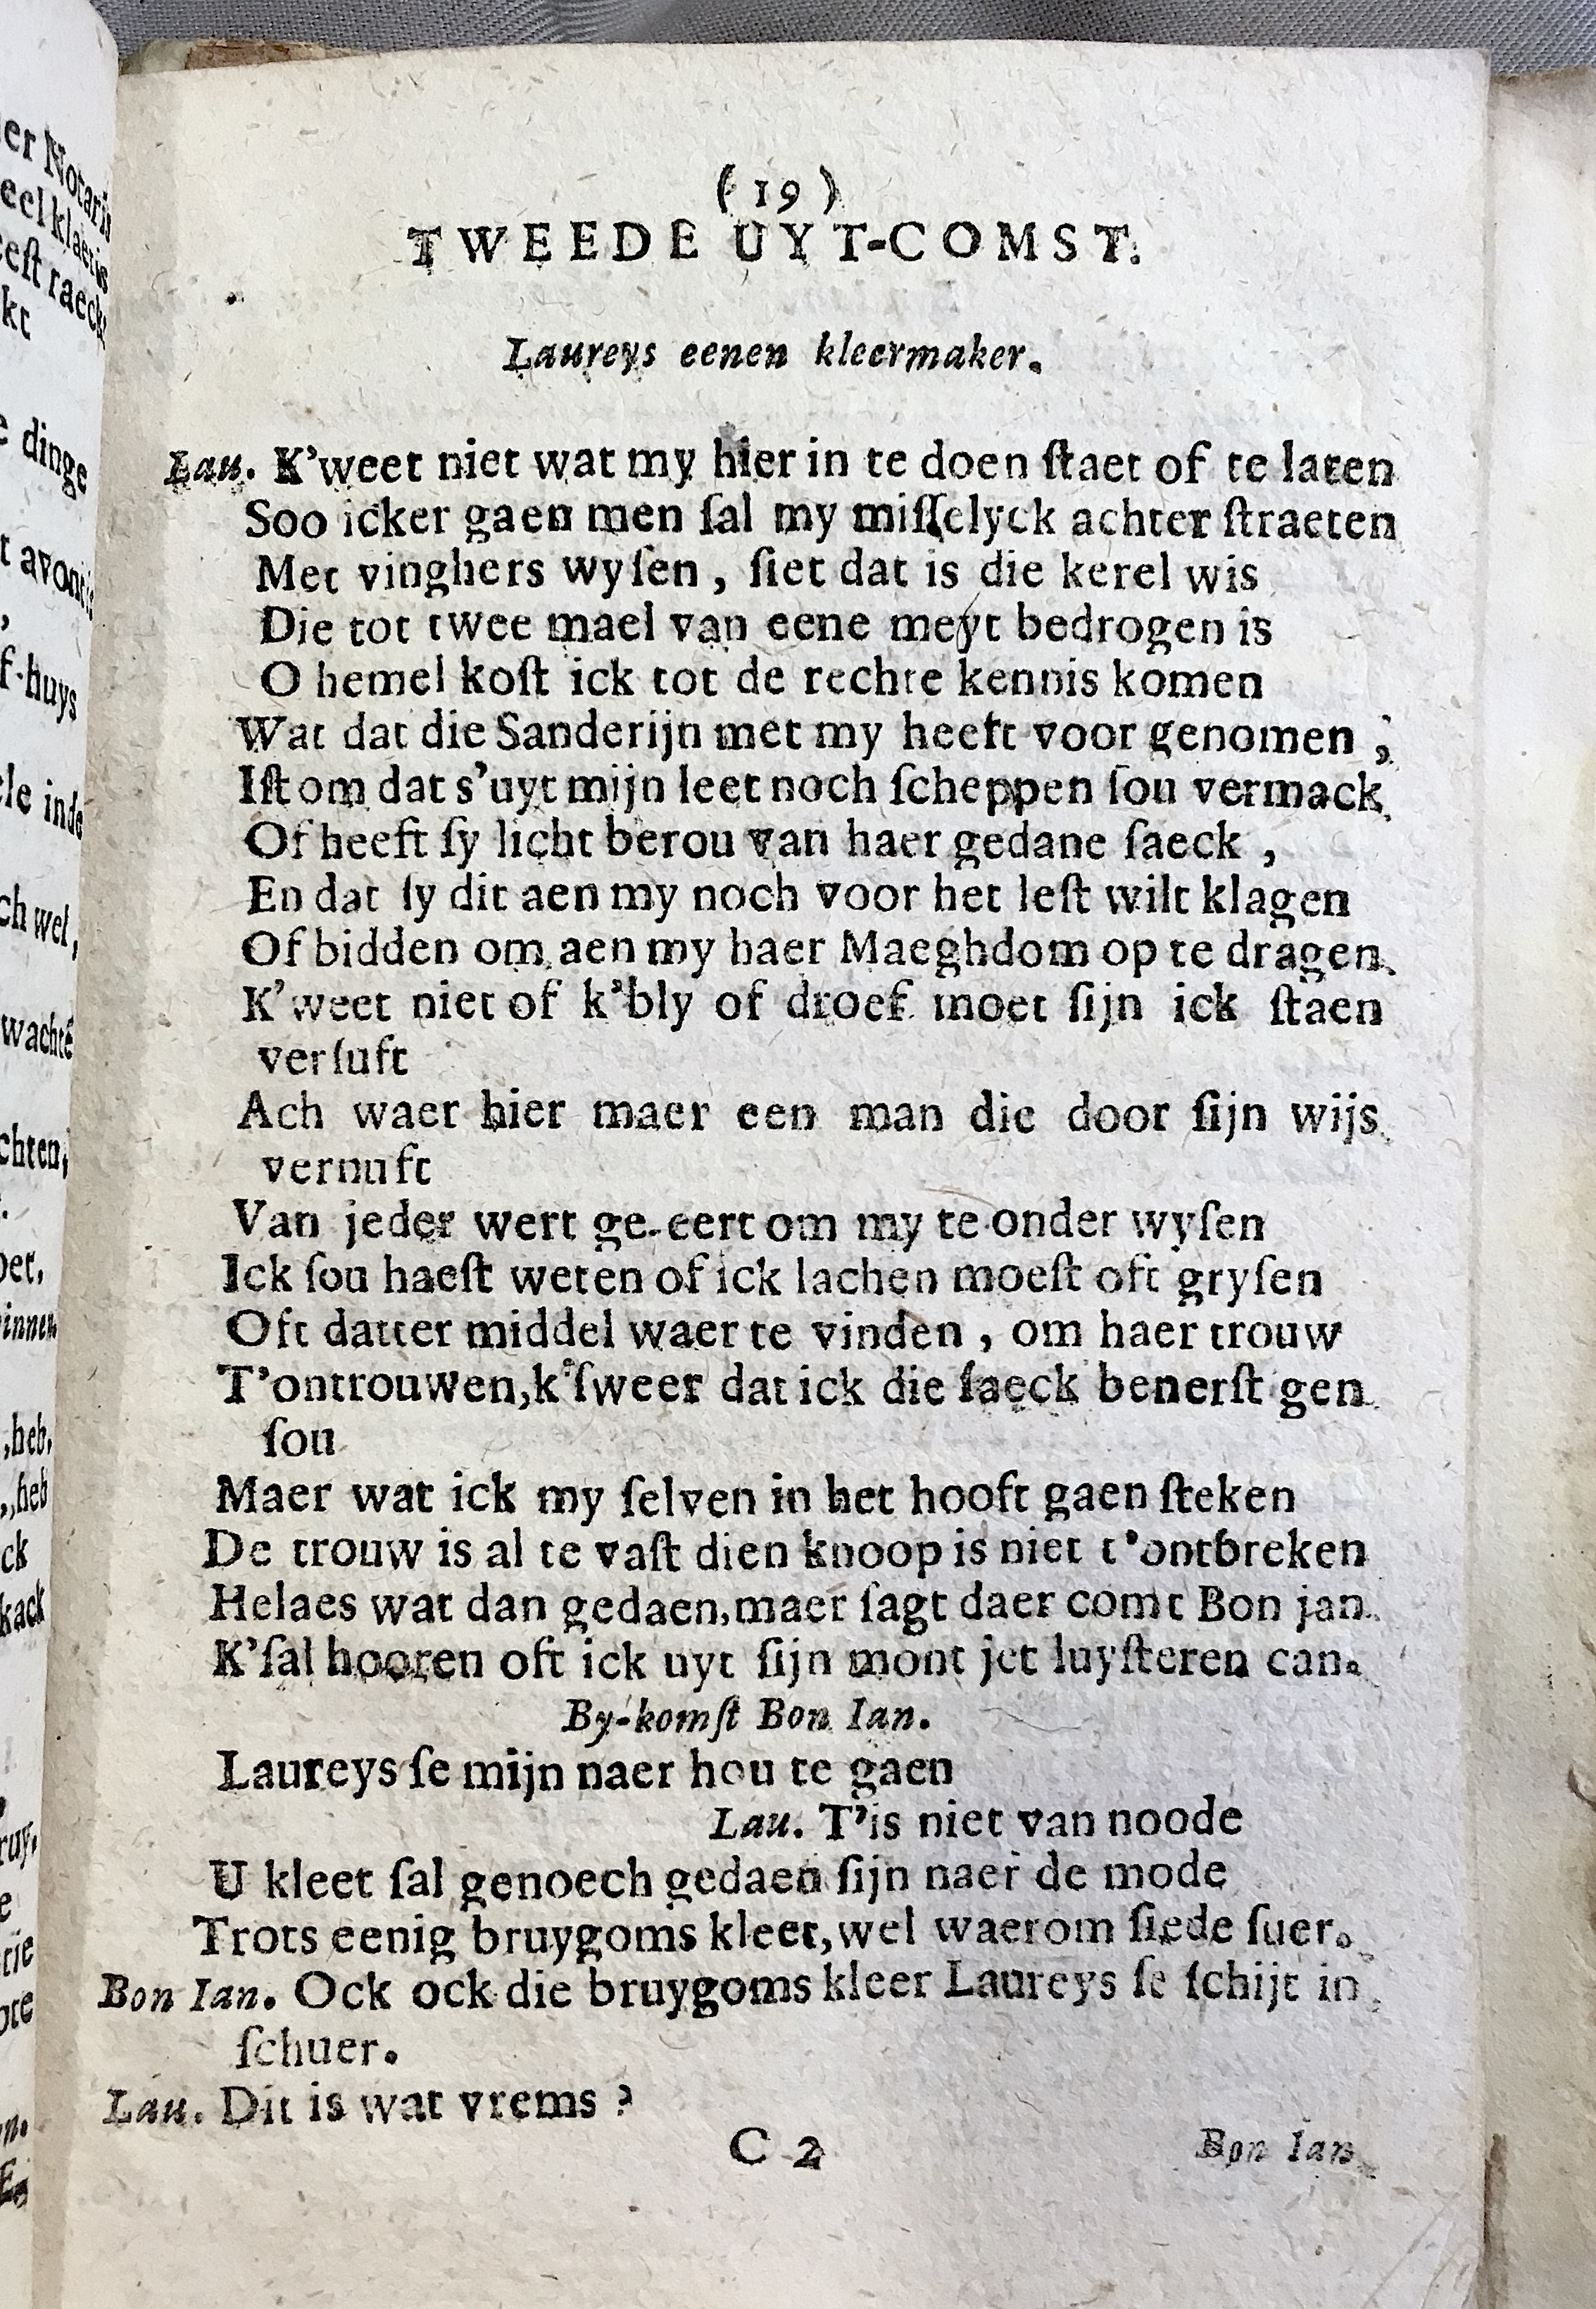 (19)
TWEEDE UYT-COMST.
Laureys eenen kleermaker.
Lau. K'weet niet wat my hier in te doen ſtaet of te laten
Soo icker gaen men ſal my miſſelyck achter ſtraeten
Met vinghers wyſen, ſiet dat is die kerel wis
Die tot twee mael van eene meyt bedrogen is
O hemel koſt ick tot de rechte kennis komen
Wat dat die Sanderijn met my heeft voor genomen;
Iſt om dat s'uyt mijn leet noch ſcheppen ſou vermack
Of heeft ſy licht berou van haer gedane ſaeck,
En dat ſy dit aen my noch voor het leſt wilt klagen
Of bidden om aen my haer Maeghdom op te dragen.
K'weet niet of k'bly of droef moet ſijn ick ſtaen
verſuft
Ach waer hier maer een man die door ſijn wijs
vernuft
Van jeder wert ge-eert om my te onder wyſen
Ick ſou haeſt weten of ick lachen moeſt oft gryſen
Oft datter middel waer te vinden, om haer trouw
T'ontrouwen, k'ſweer dat ick die ſaeck benerſt gen
ſou
Maer wat ick my ſelven in het hooft gaen ſteken
De trouw is al te vaſt dien knoop is niet t'ontbreken
Helaes wat dan gedaen, maer ſagt daer comt Bon jan.
K'ſal hooren oft ick uyt ſijn mont jet luyſteren can.
By-komſt Bon Ian.
Laureys ſe mijn naer hou te gaen
Lau. T'is niet van noode
U kleet ſal genoech gedaen ſijn naer de mode
Trots eenig bruygoms kleet, wel waerom ſiede ſuer.
Bon Ian. Ock ock die bruygoms kleer Laureys ſe ſchijt in
ſchuer.
Lau. Dit is wat vrems?
C 2
Bon Ian